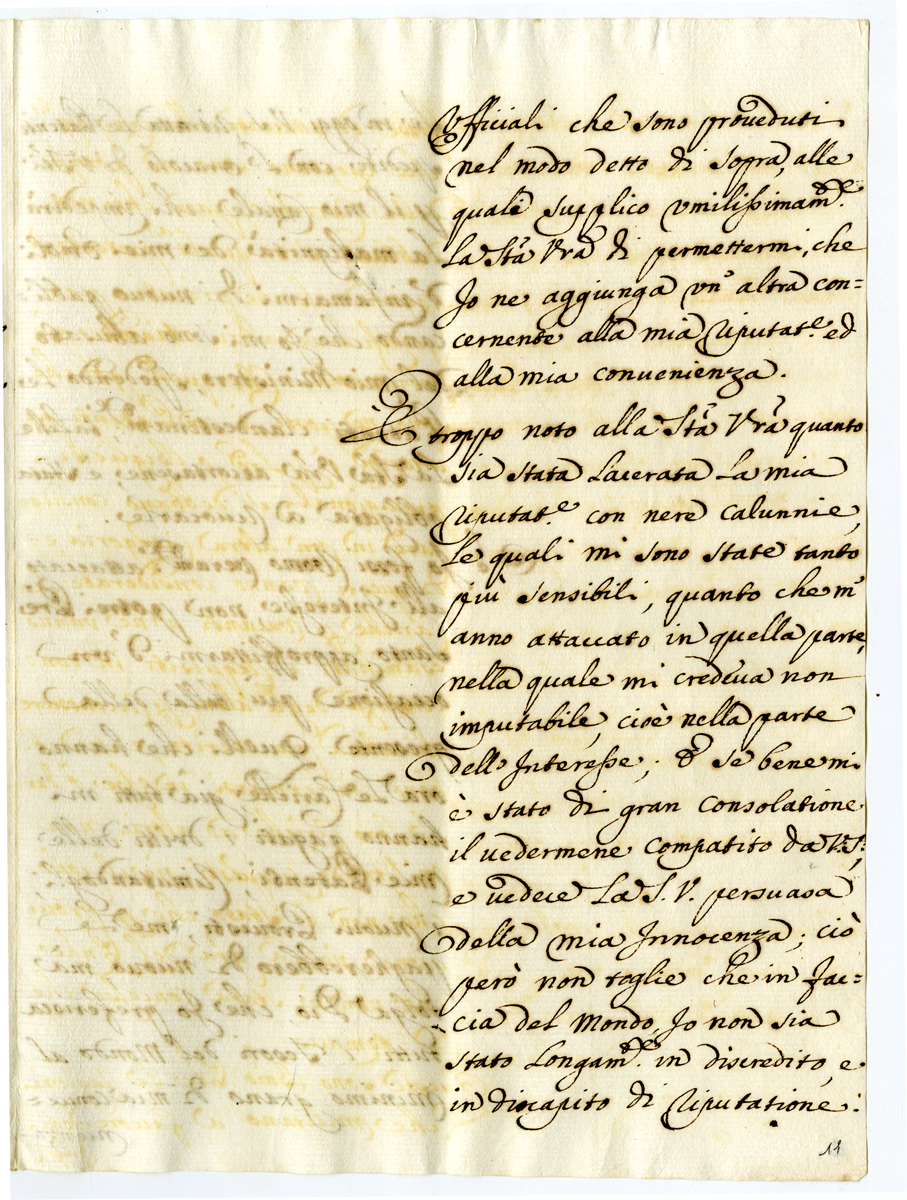 Vfficiali che sono proueduti
nel modo detto di sopra, alle
quale supplico vmilissimam.te
la Stà Vrã di permettermi, che
Jo ne aggiunga vn' altra con=
cernente alla mia Riputat.e ed
alla mia conuenienza.
E troppo noto alla Stà Vrã quanto
sia stata lacerata la mia
Riputat.e con nere calunnie,
le quali mi sono state tanto
più sensibili, quanto che m'
anno attaccato in quella parte,
nella quale mi credeua non
imputabile, cioè nella parte
dell' Interesse; & se bene mi
è stato di gran consolatione
il uedermene compatito da V. S.,
e uedere la S. V. persuasa
della mia Innocenza; ciò
però non toglie che in fac=
cia del mondo, Jo non sia
stato longam.te in discredito, e
in discapito di Riputatione:
11